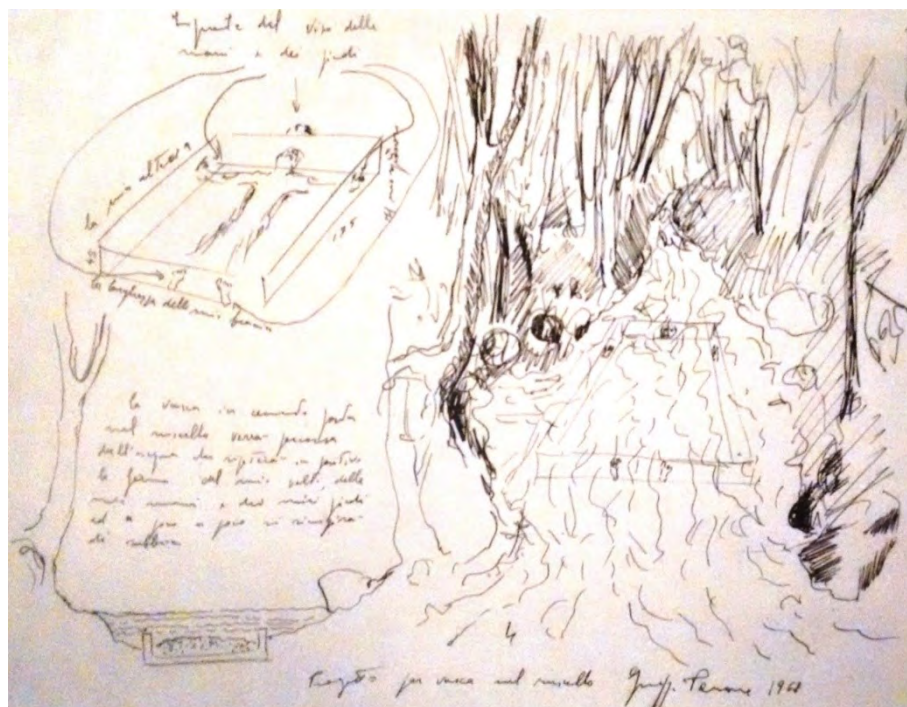 Impronte del viso delle
mani e dei piedi
la mia altezza
la larghezza delle mie braccia
la vasca in cemento posta
nel ruscello verrà percorsa
dall'acqua che ripeterà in positivo
la forma del mio volto delle
mie mani e dei miei piedi
ed a poco a poco si riempirà
di sabbia
4
Progetto per vasca nel ruscello Giusepp. Penone 1968